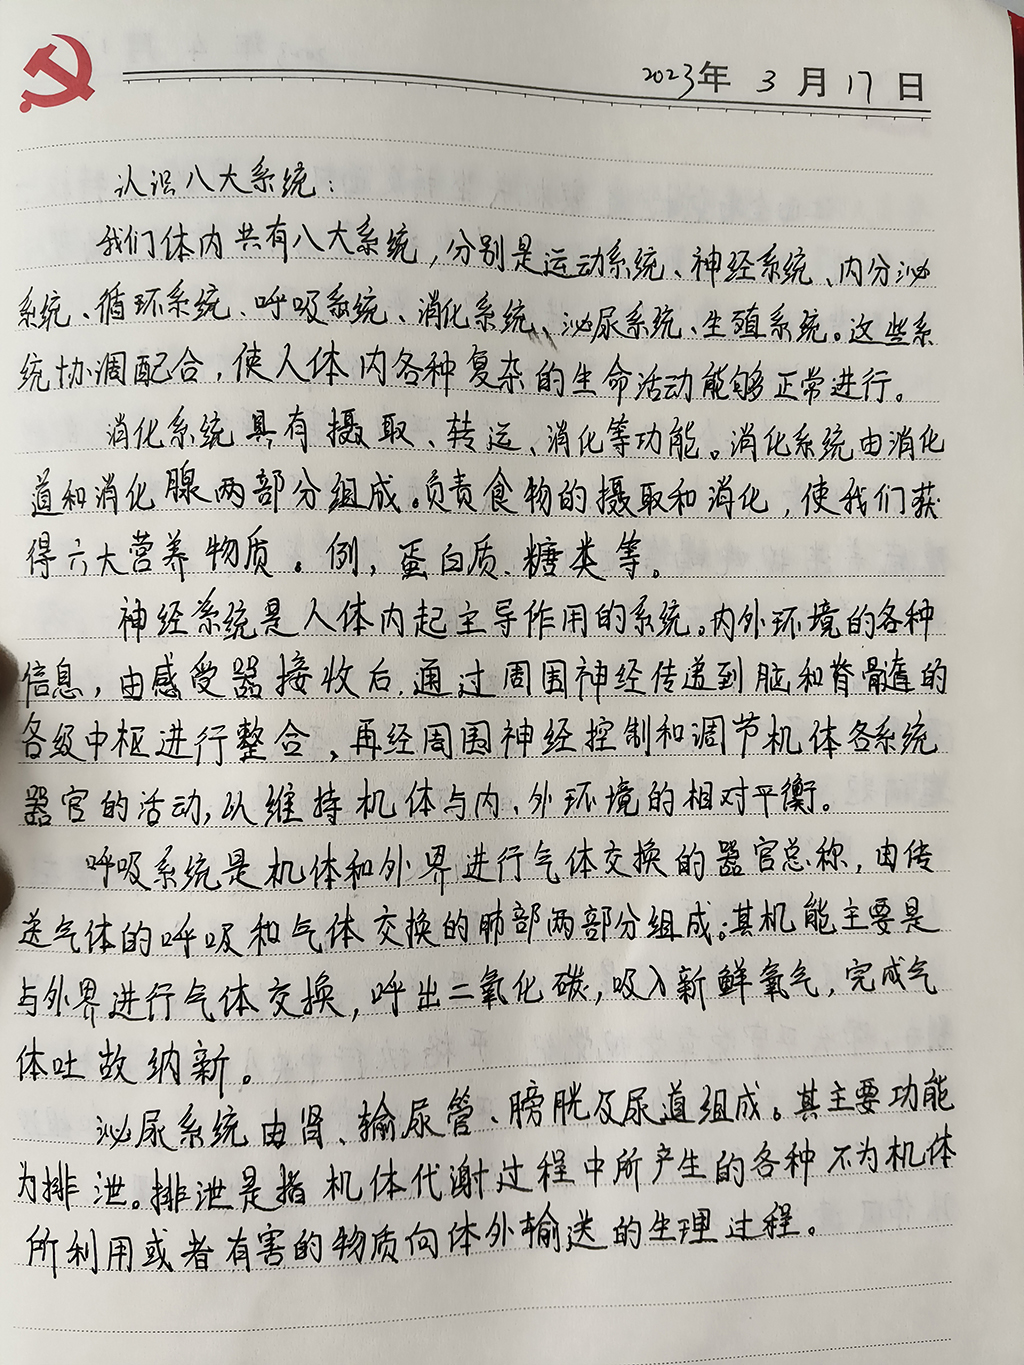 2023年 3 月 17 日
认识八大系统：
我们体内共有八大系统，分别是运动系统、神经系统、内分泌
系统、循环系统、呼吸系统、消化系统、泌尿系统、生殖系统。这些系
统协调配合，使人体内各种复杂的生命活动能够正常进行。
消化系统具有摄取、转运、消化等功能。消化系统由消化
道和消化腺两部分组成。负责食物的摄取和消化，使我们获
得六大营养物质。例，蛋白质、糖类等。
神经系统是人体内起主导作用的系统。内外环境的各种
信息，由感受器接收后，通过周围神经传递到脑和脊髓的
各级中枢进行整合，再经周围神经控制和调节机体各系统
器官的活动，以维持机体与内、外环境的相对平衡。
呼吸系统是机体和外界进行气体交换的器官总称，由传
送气体的呼吸和气体交换的肺部两部分组成；其机能主要是
与外界进行气体交换，呼出二氧化碳，吸入新鲜氧气，完成气
体吐故纳新。
泌尿系统由肾、输尿管、膀胱及尿道组成。其主要功能
为排泄。排泄是指机体代谢过程中所产生的各种不为机体
所利用或者有害的物质向体外输送的生理过程。